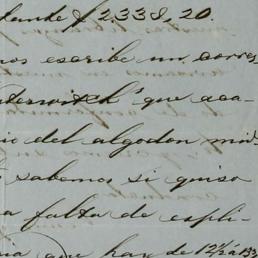 $2338,20.
nos escribe un corres-
que aca-
io del algodon mid-
sabemos si quiso
a falta de espli-
que hay de 12½ á 13